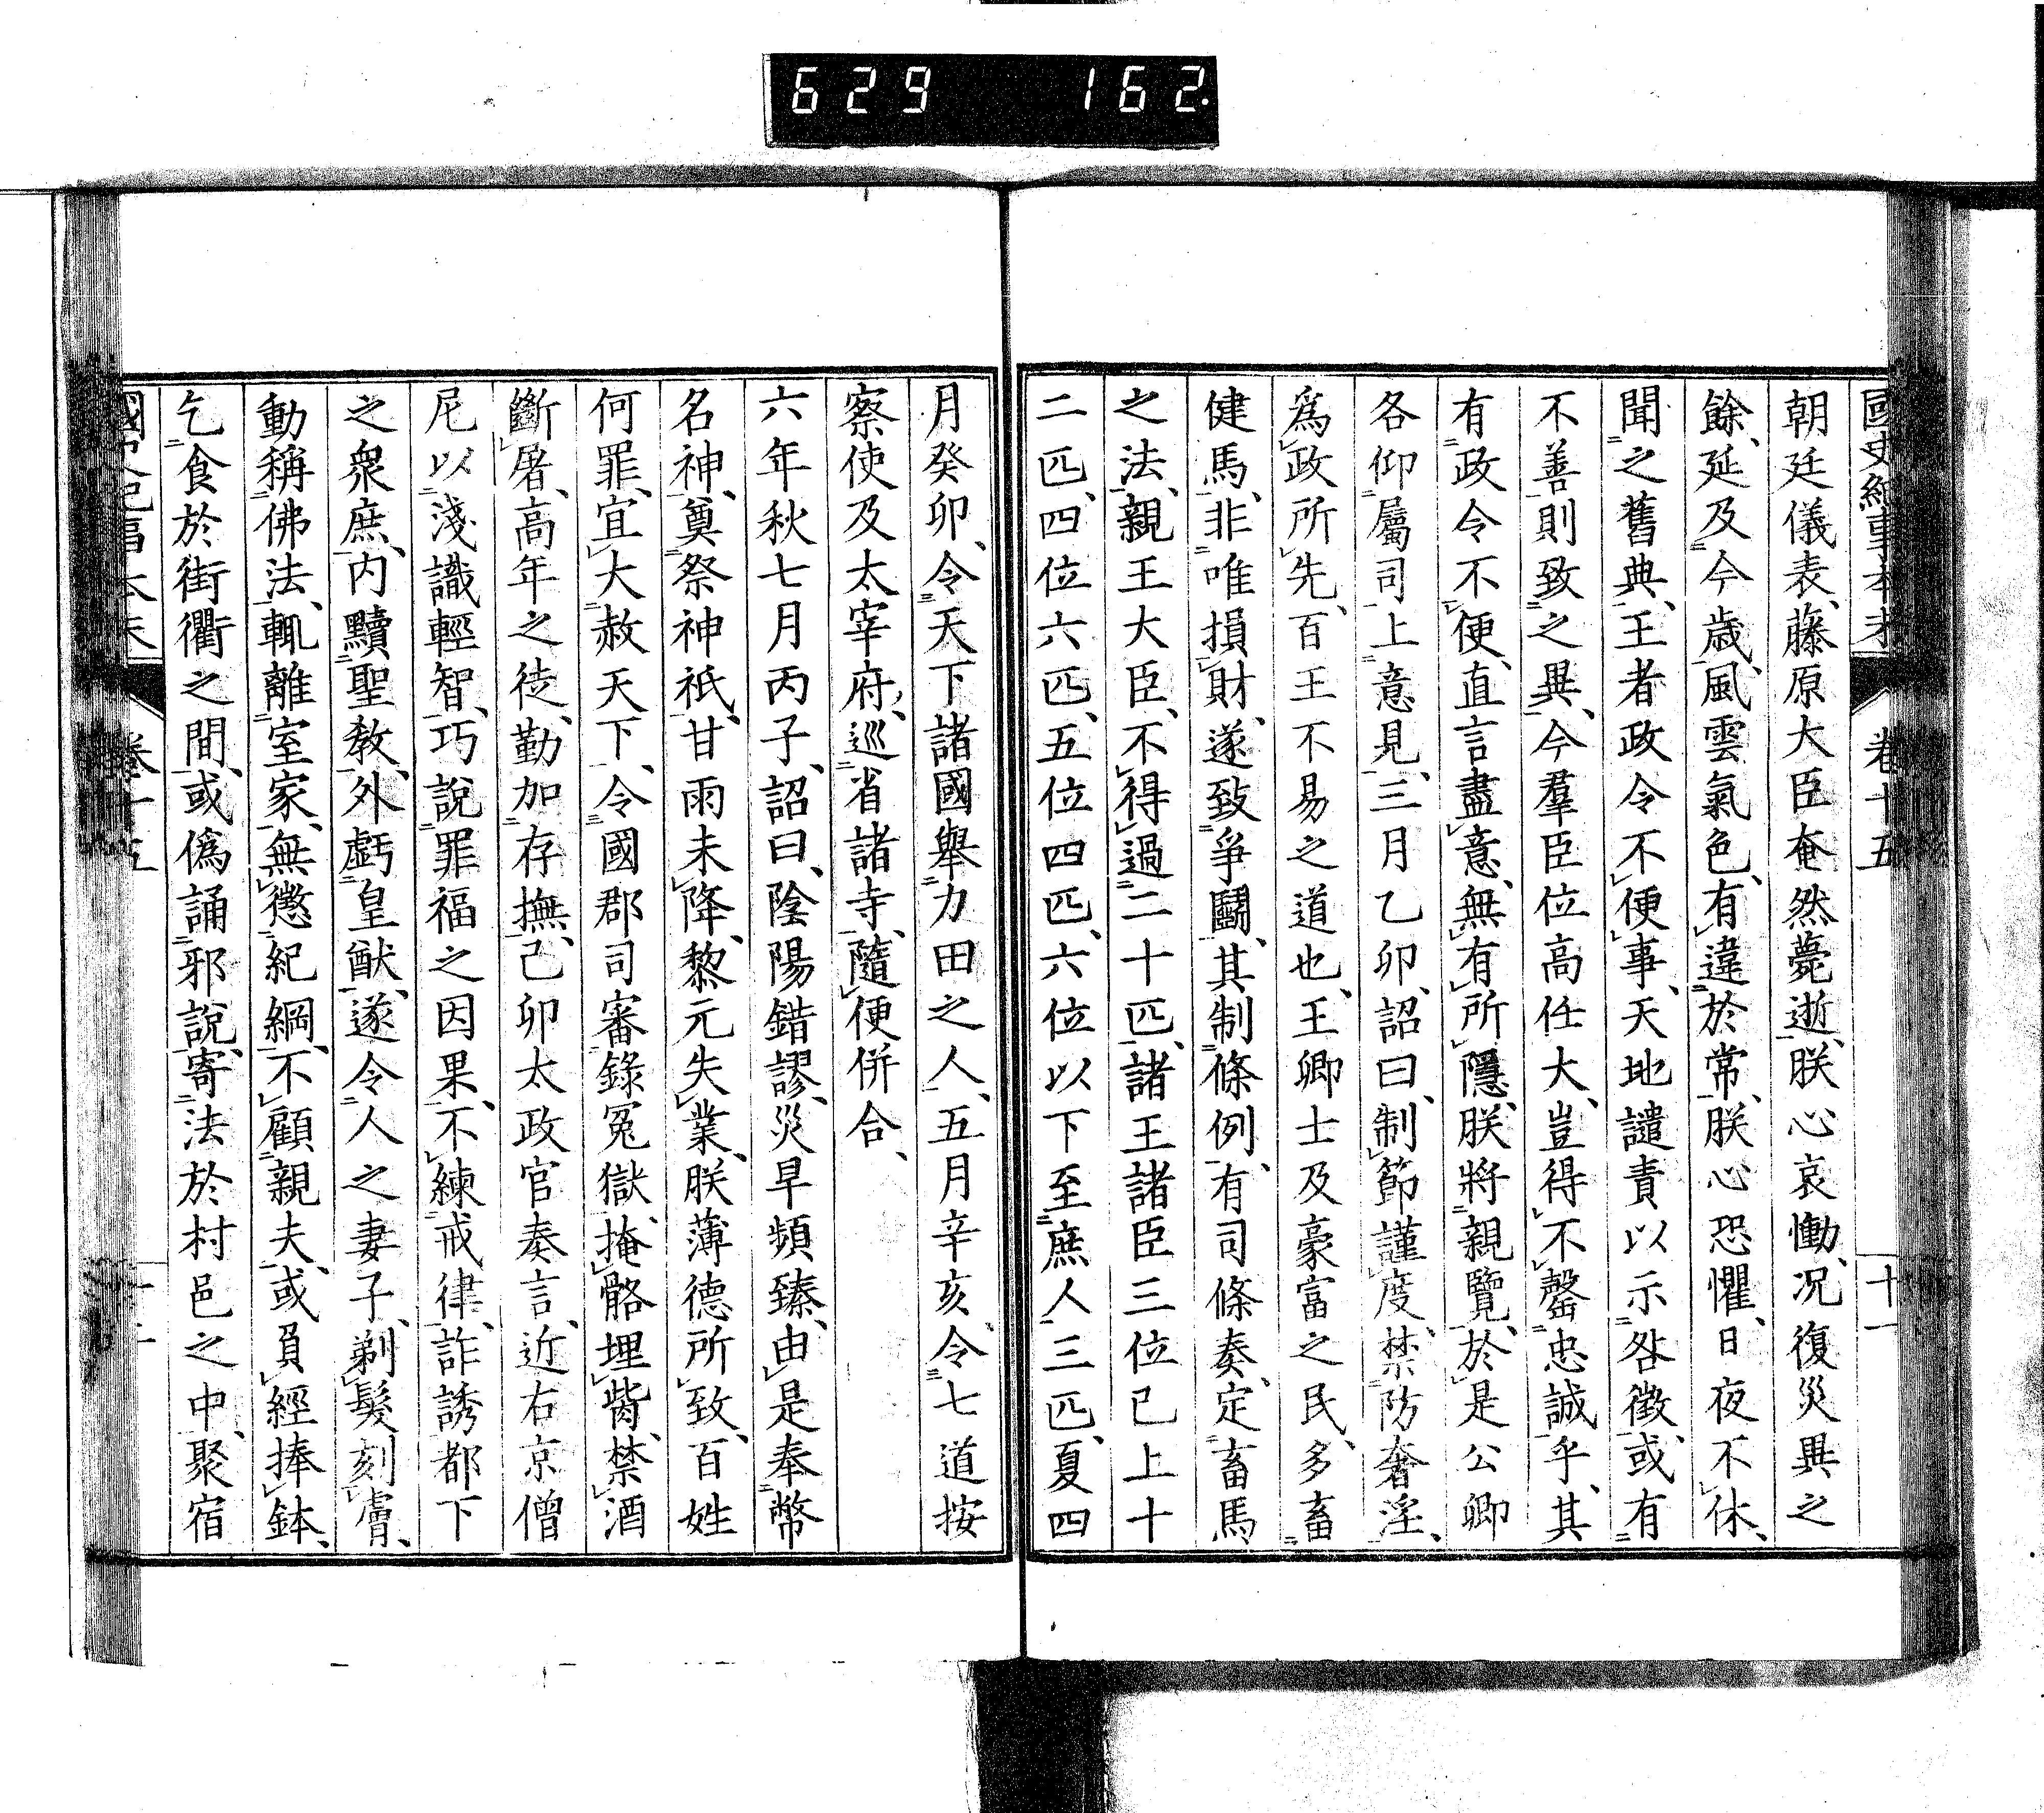 629 162
國史紀事本末 卷十五 十一
朝廷儀表、藤原大臣奄然薨逝、朕心哀慟、况復災異之
餘、延及今歳、風雲氣色、有違於常、朕心恐懼、日夜不休、
聞之舊典、王者政令不便事、天地譴責以示咎徴、或有
不善則致之異、今羣臣位高任大、豈得不罄忠誠乎、其
有政令不便、直言盡意、無有所隱、朕將親覽、於是公卿
各仰屬司上意見、三月乙卯、詔曰、制節謹度、禁防奢淫、
爲政所先、百王不易之道也、王卿士及豪富之民、多畜
健馬、非唯損財、遂致爭鬭、其制條例、有司條奏、定畜馬
之法、親王大臣、不得過二十匹、諸王諸臣三位已上十
二匹、四位六匹、五位四匹、六位以下至庶人三匹、夏四
月癸卯、令天下諸國舉力田之人、五月辛亥、令七道按
察使及太宰府、巡省諸寺、隨便併合、
六年秋七月丙子、詔曰、陰陽錯謬、災旱頻臻、由是奉幣
名神、奠祭神祇、甘雨未降、黎元失業、朕薄德所致、百姓
何罪、宜大赦天下、令國郡司審錄冤獄、掩骼埋胔、禁酒
斷屠、高年之徒、勤加存撫、己卯太政官奏言、近右京僧
尼以淺識輕智、巧說罪福之因果、不練戒律、詐誘都下
之衆庶、内黷聖教、外虧皇猷、遂令人之妻子、剃髮刻膚、
動稱佛法、輒離室家、無懲紀綱、不顧親夫、或負經捧鉢、
乞食於街衢之間、或僞誦邪說、寄法於村邑之中、聚宿
國史紀事本末 卷十五